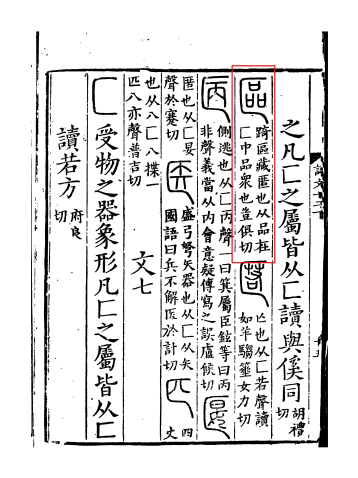 之凡匸之屬皆从匸讀與傒同
胡禮
切
區
踦區藏匿也从品在
匸中品衆也豈俱切
匿
亾也从匸若聲讀
如羊騶箠女力切
㔷
側逃也从匸丙聲一曰箕屬臣鉉等曰丙
非聲義當从内會意疑傳寫之誤盧候切
匽
匿也从匸妟
聲於蹇切
医
盛弓弩矢器也从匸从矢
國語曰兵不解医於計切
匹
四
丈
也从八匸八揲一
匹八亦聲普吉切
文七
匚
受物之器象形凡匚之屬皆从匚
讀若方
府良
切